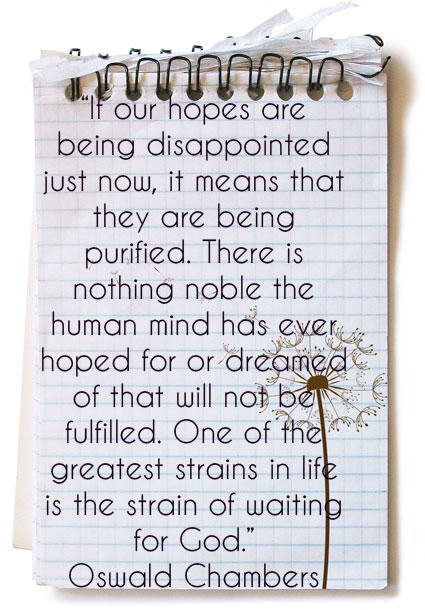 “If our hopes are
being disappointed
just now, it means that
they are being
purified. There is
nothing noble the
human mind has ever
hoped for or dreamed
of that will not be
fulfilled. One of the
greatest strains in life
is the strain of waiting
for God.”
Oswald Chambers